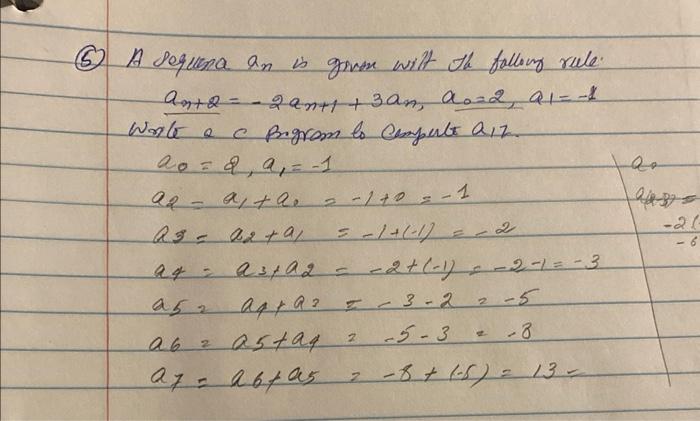 ⑤ A sequence an is given with the following rule.
an+2 = -2an+1 + 3an, a0=2, a1=-1
Write a C Program to Compute a17.
a0 = 2, a1 = -1
a0
a2 = a1 + a0 = -1+0 = -1
a3 = a2 + a1 = -1+(-1) = -2
-2(
-6
a4 = a3 + a2 = -2+(-1) = -2-1 = -3
a5 = a4 + a3 = -3-2 = -5
a6 = a5 + a4 = -5-3 = -8
a7 = a6 + a5 = -8+(-5) = 13 -